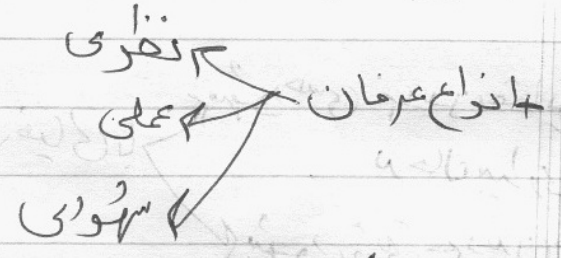 انواع عرفان
نظری
عملی
شهودی